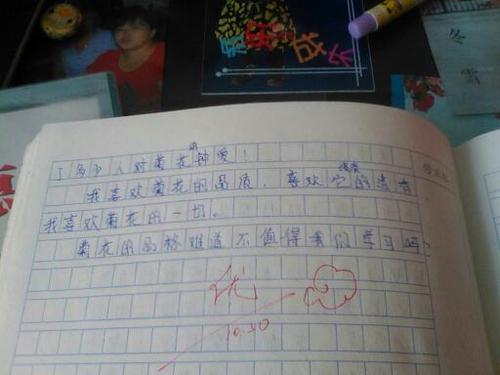 冬
雪
了多少人对菊花的钟爱！
我喜欢菊花的品质，喜欢它的清香
我喜欢菊花的一切。
菊花的品格难道不值得我们学习吗
优
10.30